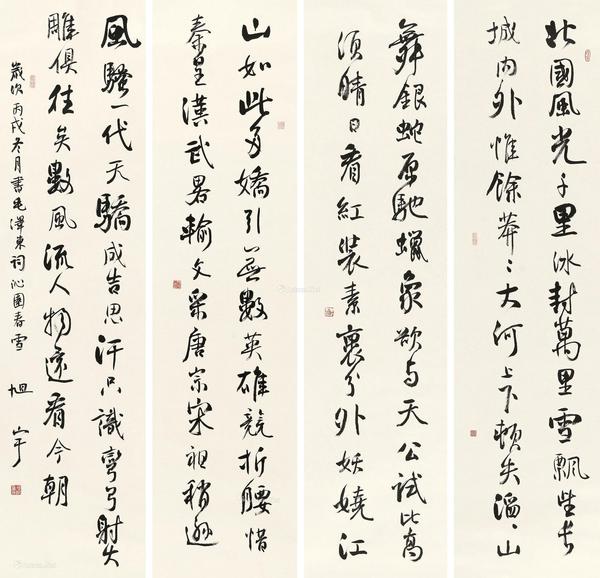 北國風光千里冰封萬里雪飄望長
城内外惟餘莽〻大河上下頓失滔〻山
舞銀蛇原馳蠟象欲与天公試比高
須晴日看紅裝素裹分外妖嬈江
山如此多嬌引無數英雄競折腰惜
秦皇漢武畧輸文采唐宗宋祖稍遜
風騷一代天驕成吉思汗只識彎弓射大
雕俱往矣數風流人物還看今朝
歲次丙戌冬月書毛澤東詞沁園春雪 旭宇